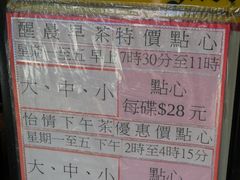 醒晨早茶特價點心
星期一至五早上7時30分至11時
大、中、小
點心
每碟$28元
怡情下午茶優惠價點心
星期一至五下午2時至4時15分
大、中、小
點心